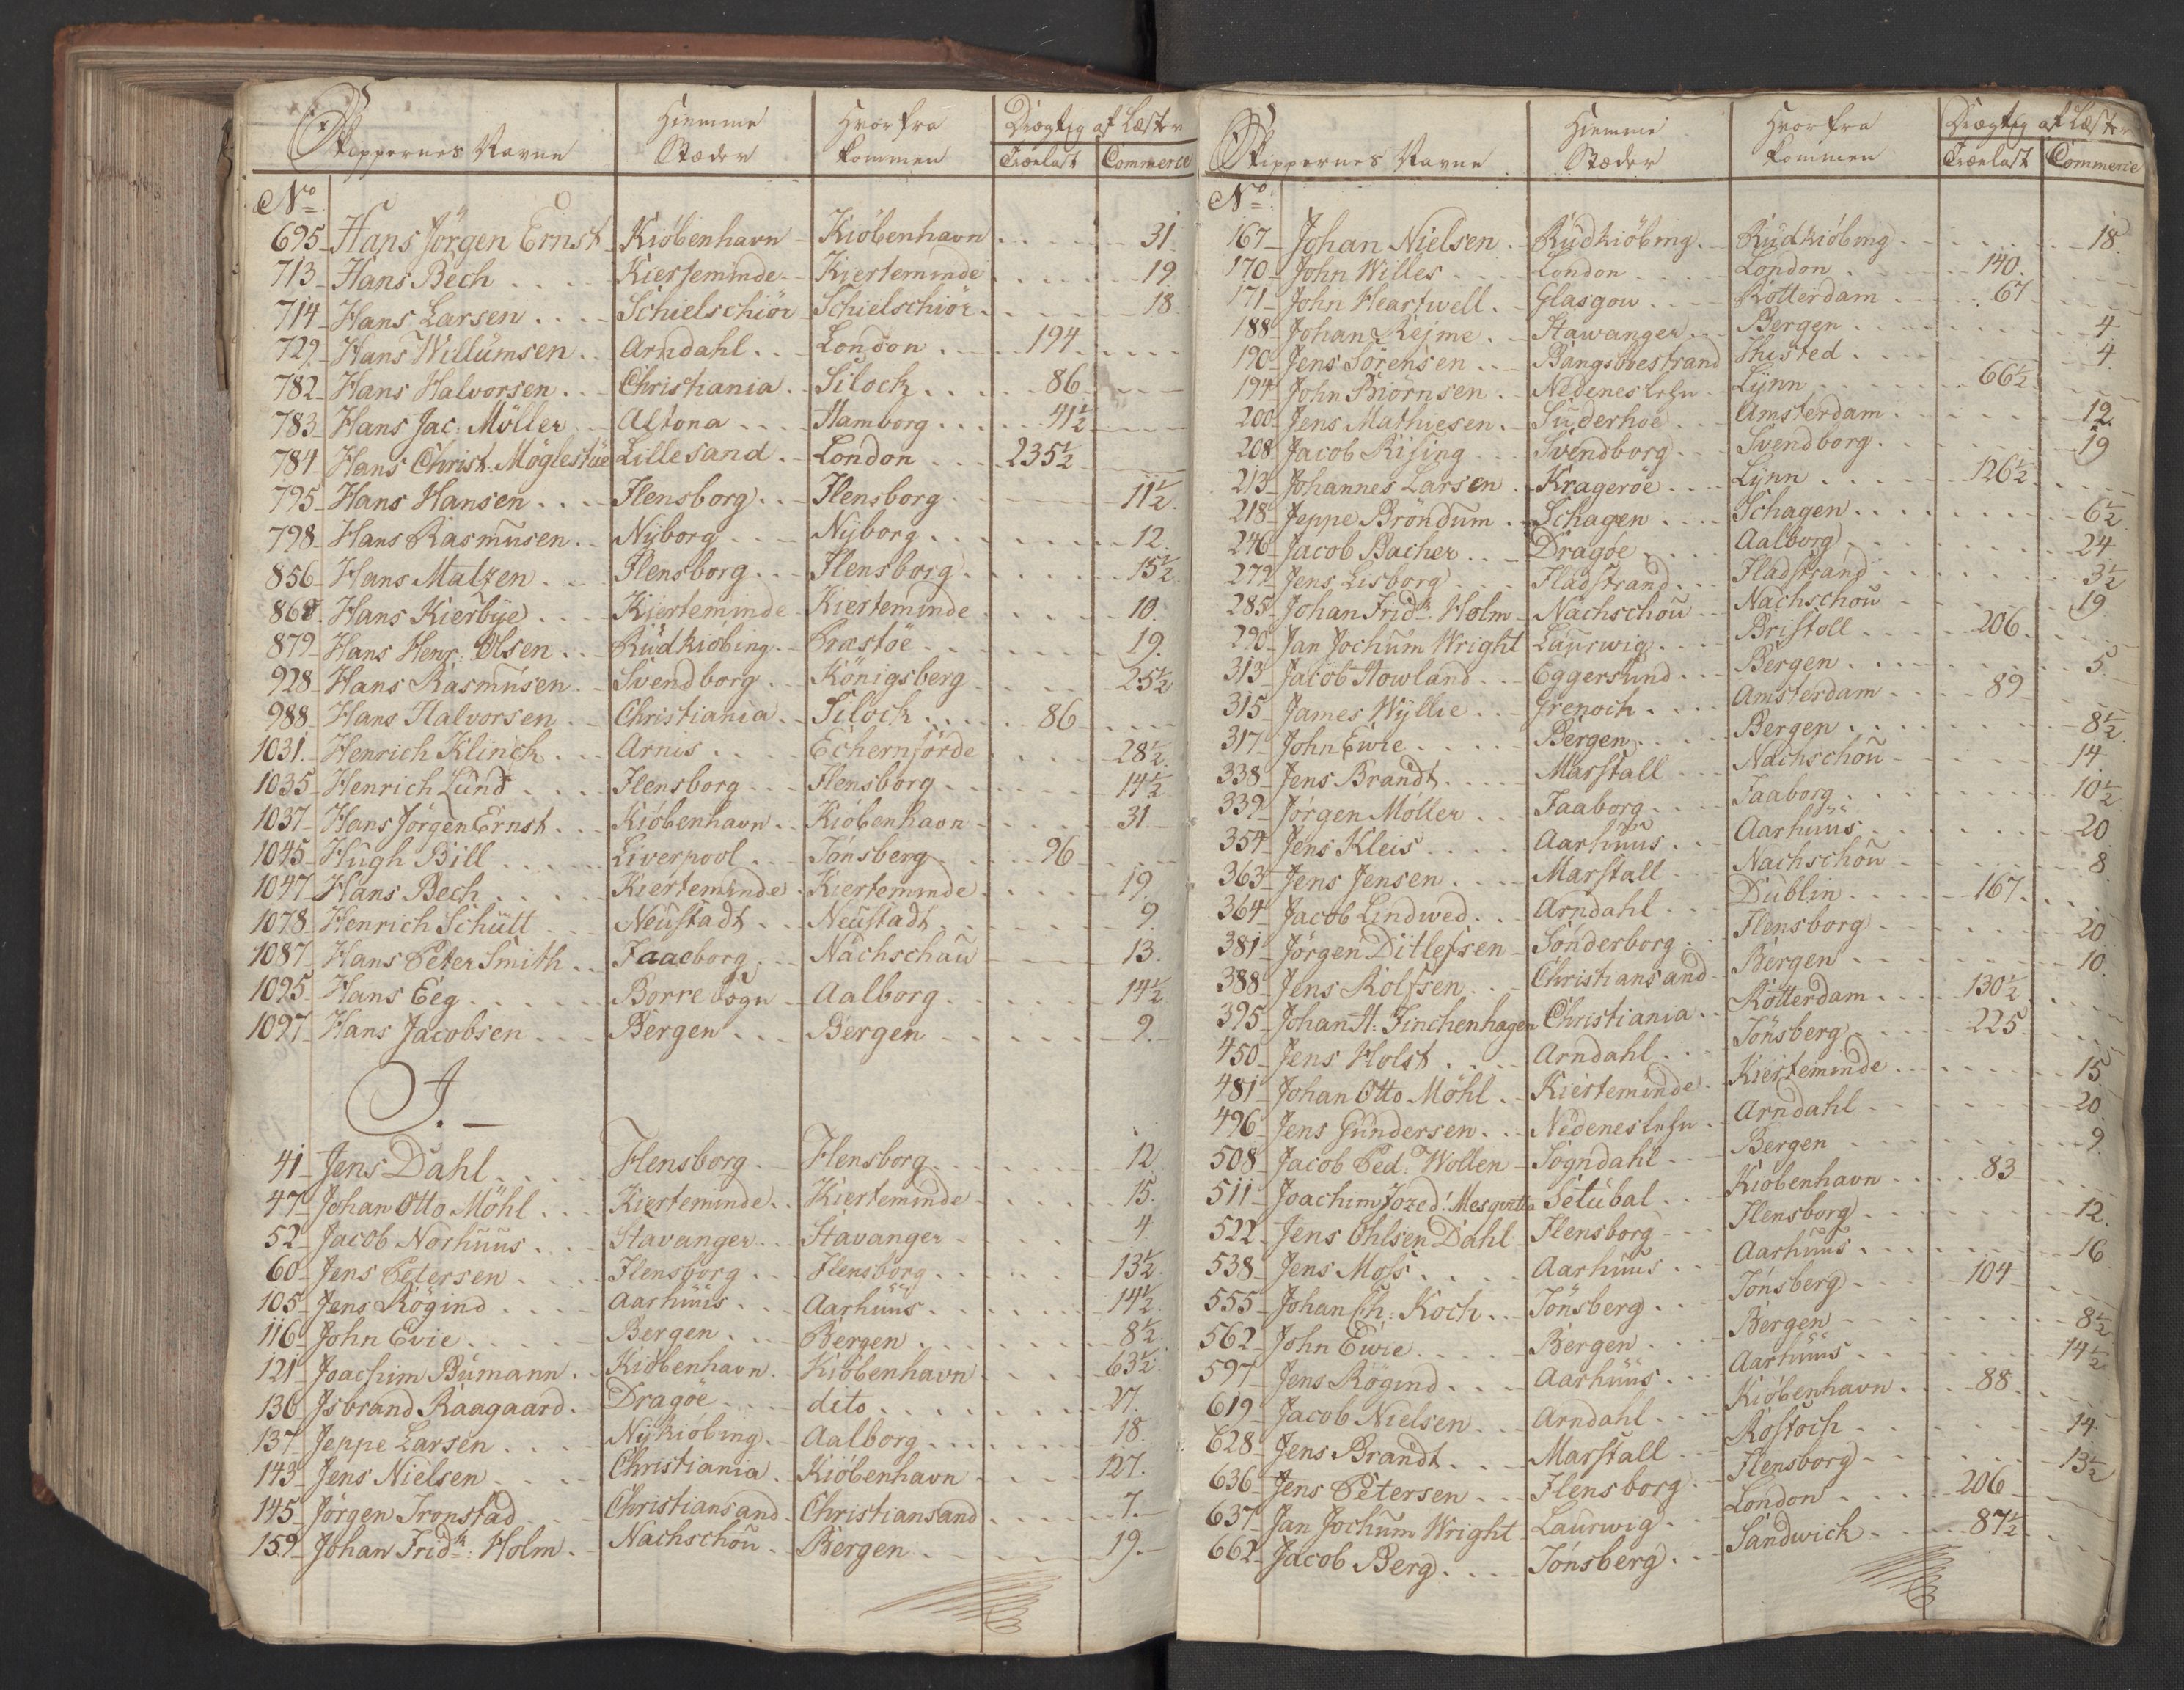 Skippernes Navne | Hiemme Stæder | Hvorfra kommen | Drægtig af Læster: Trælast | Commerce
No
695 Hans Jörgen Ernst Kiöbenhavn Kiöbenhavn 31
713 Hans Bech Kierteminde Kierteminde 19
714 Hans Larsen Schielschiör Schielschiör 18
729 Hans Willumsen Arndahl London 194
782 Hans Halvorsen Christiania Silock 86
783 Hans Jac: Möller Altona Hamborg 41½
784 Hans Christ: Möglestüe Lillesand London 235½
795 Hans Hansen Flensborg Flensborg 11½
798 Hans Rasmusen Nyborg Nyborg 12
856 Hans Matzen Flensborg Flensborg 15½
868 Hans Kierbye Kierteminde Kierteminde 10
879 Hans Henr: Olsen Rudkiöbing Præstöe 19
928 Hans Rasmusen Svendborg Königsberg 25½
988 Hans Halvorsen Christiania Silock 86
1031 Henrich Klinck Arnis Echernförde 28½
1035 Henrich Lund Flensborg Flensborg 14½
1037 Hans Jörgen Ernst Kiöbenhavn Kiöbenhavn 31
1045 Hugh Bill Liverpool Tönsberg 96
1047 Hans Bech Kierteminde Kierteminde 19
1078 Henrich Schütt Neustadt Neustadt 9
1087 Hans Peter Smith Faaeborg Nachschau 13
1095 Hans Eeg Borre Sogn Aalborg 14½
1097 Hans Jacobsen Bergen Bergen 9
J.
41 Jens Dahl Flensborg Flensborg 12
47 Johan Otto Möhl Kierteminde Kierteminde 15
52 Jacob Norhuus Stavanger Stavanger 4
60 Jens Petersen Flensborg Flensborg 13½
105 Jens Rögind Aarhuus Aarhuus 14½
116 John Evie Bergen Bergen 8½
121 Joachim Bumann Kiöbenhavn Kiöbenhavn 63½
130 Jsbrand Raagaard Dragöe dito 27
137 Jeppe Larsen Nykiöbing Aalborg 18
143 Jens Nielsen Christiania Kiöbenhavn 127
145 Jörgen Tronstad Christiansand Christiansand 7
159 Johan Fridk: Holm Nachschou Bergen 19
Skippernes Navne | Hiemme Stæder | Hvorfra kommen | Drægtig af Læster: Trælast | Commerce
No
167 Johan Nielsen Rudkiöbing Rudkiöbing 18
170 John Willes London London 140
171 John Heartwell Glasgow Rotterdam 67
188 Johan Rejme Stawanger Bergen 4
190 Jens Sörensen Bangsboestrand Thisted 4
194 John Biörnsen Nedenes Lehn Lynn 66½
200 Jens Mathiesen Suderhoe Amsterdam 12
208 Jacob Rising Svendborg Svendborg 19
213 Johannes Larsen Krageröe Lynn 126½
218 Jeppe Bröndum Schagen Schagen 6½
246 Jacob Bacher Dragöe Aalborg 24
279 Jens Lisborg Fladstrand Fladstrand 3½
285 Johan Fridk: Holm Nachschou Nachschou 19
290 Jan Jochum Wright Laurwig Bristoll 206
313 Jacob Howland Eggersund Bergen 5
315 James Wyllie Grenoch Amsterdam 89
317 John Ewie Bergen Bergen 8½
338 Jens Brandt Marstall Nachschou 14
339 Jörgen Moller Faaborg Faaborg 10½
354 Jens Kleis Aarhuus Aarhuus 20
363 Jens Jensen Marstall Nachschou 8
364 Jacob Lindwed Arndahl Dublin 167
381 Jörgen Ditlefsen Sonderborg Flensborg 20
388 Jens Rolfsen Christiansand Bergen 10
395 Johan H: Finchenhagen Christiania Rotterdam 130½
450 Jens Holst Arndahl Tönsberg 225
481 Johan Otto Möhl Kierteminde Kierteminde 15
496 Jens Gundersen Nedenes Lehn Arndahl 20
508 Jacob Ped: Wollen Sogndahl Bergen 9
511 Joachim Jozed: Mesquitta Setubal Kiöbenhavn 83
522 Jens Ohlsen Dahl Flensborg Flensborg 12
538 Jens Moss Aarhuus Aarhuus 16
555 Johan Ch: Koch Tönsberg Tönsberg 104
562 John Ewie Bergen Bergen 8½
597 Jens Rögind Aarhuus Aarhuus 14½
619 Jacob Nielsen Arndahl Kiöbenhavn 88
628 Jens Brandt Marstall Rostoch 14
636 Jens Petersen Flensborg Flensborg 13½
637 Jan Jochum Wright Laurwig London 206
662 Jacob Berg Tönsberg Sandwick 87½